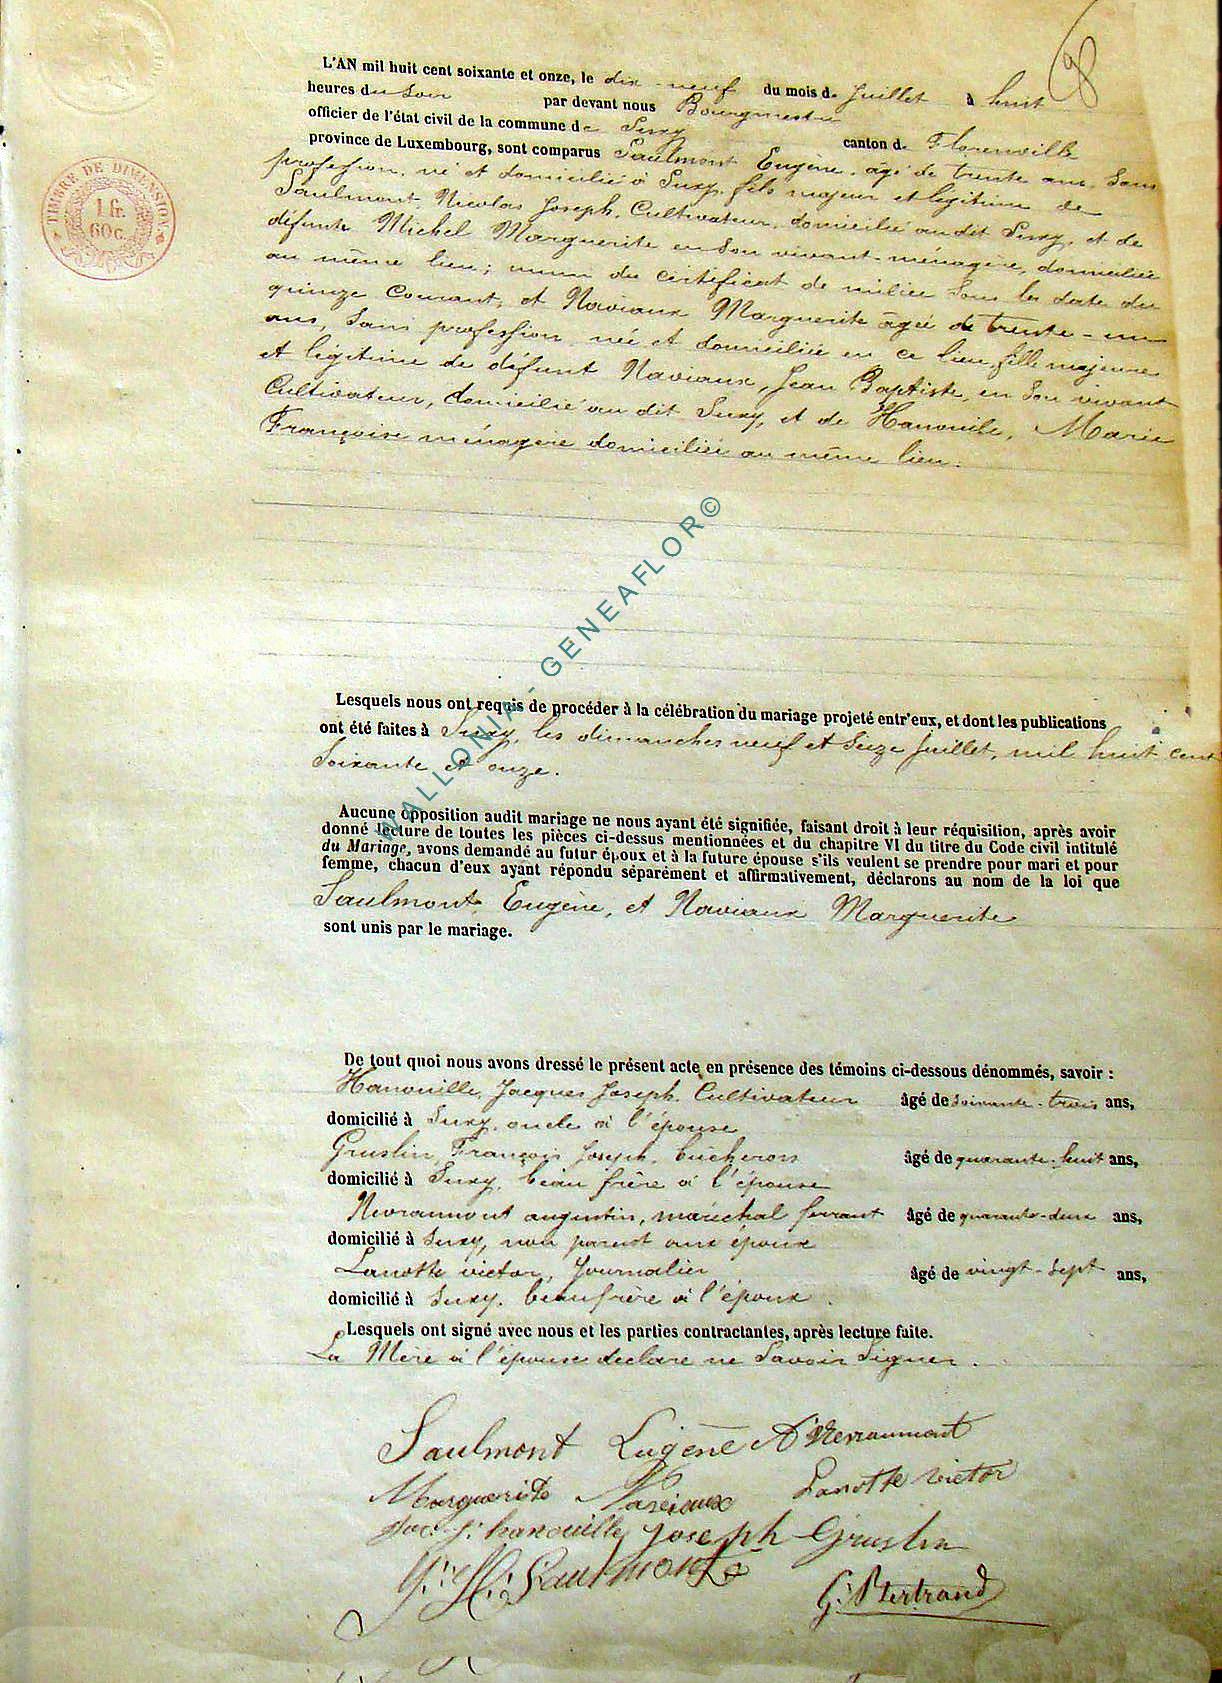 98
L'AN mil huit cent soixante et onze, le dix-neuf du mois de Juillet à huit
heures du Soir par devant nous Bourgmestre
officier de l'état civil de la commune de Suxy canton de Florenville
province de Luxembourg, sont comparus Saulmont Eugène, âgé de trente ans, sans
profession, né et domicilié à Suxy, fils majeur et légitime de
Saulmont Nicolas Joseph, Cultivateur, domicilié au dit Suxy, et de
défunte Michel Marguerite en son vivant ménagère, domiciliée
au même lieu; muni du certificat de milice sous la date du
quinze Courant, et Naviaux Marguerite âgée de trente-un
ans, sans profession, née et domiciliée en ce lieu, fille majeure
et légitime de défunt Naviaux, Jean Baptiste, en son vivant
Cultivateur, domicilié au dit Suxy, et de Hanouille, Marie
Françoise ménagère domiciliée au même lieu.
TIMBRE DE DIMENSION
1 fr.
60 c.
Lesquels nous ont requis de procéder à la célébration du mariage projeté entr'eux, et dont les publications
ont été faites à Suxy, les dimanches neuf et seize Juillet, mil huit cent
Soixante et onze.
Aucune opposition audit mariage ne nous ayant été signifiée, faisant droit à leur réquisition, après avoir
donné lecture de toutes les pièces ci-dessus mentionnées et du chapitre VI du titre du Code civil intitulé
du Mariage, avons demandé au futur époux et à la future épouse s'ils veulent se prendre pour mari et pour
femme, chacun d'eux ayant répondu séparément et affirmativement, déclarons au nom de la loi que
Saulmont, Eugène, et Naviaux Marguerite
sont unis par le mariage.
De tout quoi nous avons dressé le présent acte en présence des témoins ci-dessous dénommés, savoir :
Hanouille, Jacques Joseph, Cultivateur âgé de soixante-trois ans,
domicilié à Suxy, oncle à l'épouse
Gruslin, François Joseph, bucheron âgé de quarante-huit ans,
domicilié à Suxy, beau frère à l'épouse
Nevraumont augustin, maréchal ferrant âgé de quarante-deux ans,
domicilié à Suxy, non parent aux époux
Lanotte victor, Journalier âgé de vingt-sept ans,
domicilié à Suxy, beaufrère à l'époux.
Lesquels ont signé avec nous et les parties contractantes, après lecture faite.
La Mère à l'épouse déclare ne Savoir Signer.
Saulmont Eugène A Nevraumont
Marguerite Naviaux Lanotte victor
Jac. J. hanouille Joseph Gruslin
Saulmont
G. Bertrand
WALLONIA - GENEAFLOR©